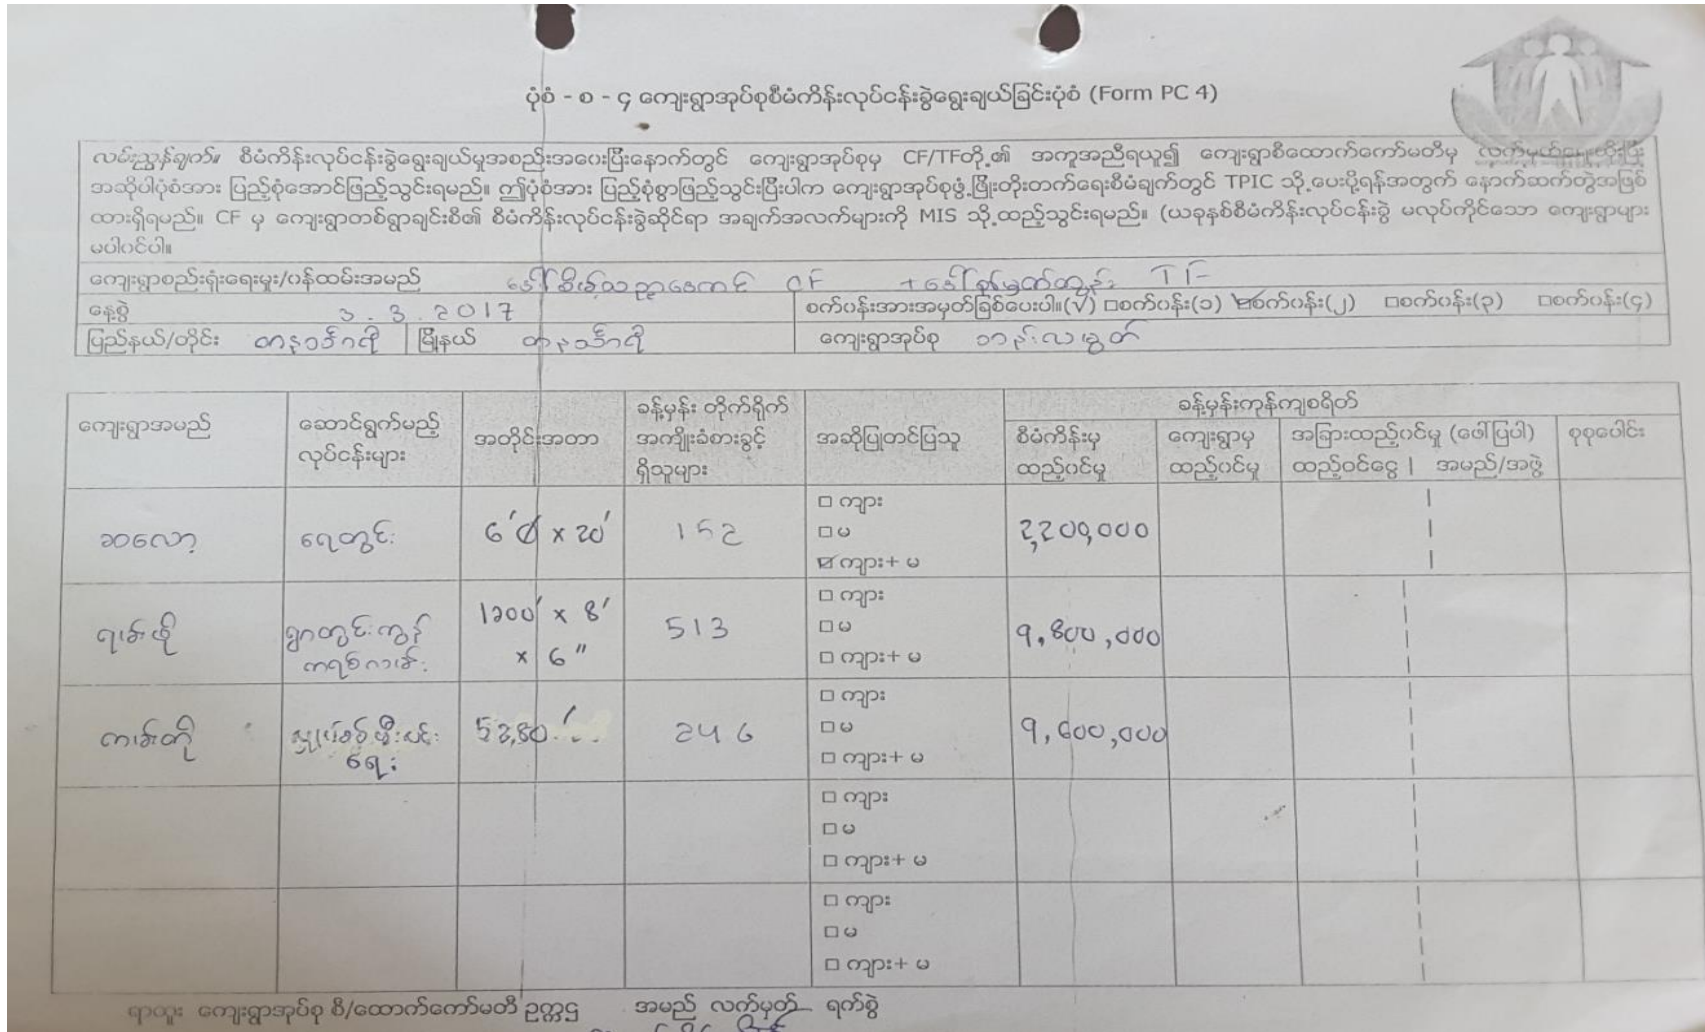 ပုံစံ - စ - ၄ ကျေးရွာအုပ်စုစီမံကိန်းလုပ်ငန်းခွဲရွေးချယ်ခြင်းပုံစံ (Form PC 4)
လမ်းညွှန်ချက်။ စီမံကိန်းလုပ်ငန်းခွဲရွေးချယ်မှုအစည်းအဝေးပြီးနောက်တွင် ကျေးရွာအုပ်စုမှ CF/TFတို့၏ အကူအညီရယူ၍ ကျေးရွာစီထောက်ကော်မတီမှ
အဆိုပါပုံစံအား ပြည့်စုံအောင်ဖြည့်သွင်းရမည်။ ဤပုံစံအား ပြည့်စုံစွာဖြည့်သွင်းပြီးပါက ကျေးရွာအုပ်စုဖွံ့ဖြိုးတိုးတက်ရေးစီမံချက်တွင် TPIC သို့ပေးပို့ရန်အတွက် နောက်ဆက်တွဲအဖြစ်
ထားရှိရမည်။ CF မှ ကျေးရွာတစ်ရွာချင်းစီ၏ စီမံကိန်းလုပ်ငန်းခွဲဆိုင်ရာ အချက်အလက်များကို MIS သို့ထည့်သွင်းရမည်။ (ယခုနှစ်စီမံကိန်းလုပ်ငန်းခွဲ မလုပ်ကိုင်သော ကျေးရွာများ
မပါဝင်ပါ။
ကျေးရွာစည်းရုံးရေးမှူး/ဝန်ထမ်းအမည် CF + TF
နေ့စွဲ 3.3.2017 စက်ဝန်းအားအမှတ်ခြစ်ပေးပါ။(√) □စက်ဝန်း(၁) ☑စက်ဝန်း(၂) □စက်ဝန်း(၃) □စက်ဝန်း(၄)
ပြည်နယ်/တိုင်း တနင်္သာရီ မြို့နယ် တနင်္သာရီ ကျေးရွာအုပ်စု
ကျေးရွာအမည် ဆောင်ရွက်မည့် လုပ်ငန်းများ အတိုင်းအတာ ခန့်မှန်း တိုက်ရိုက် အကျိုးခံစားခွင့် ရှိသူများ အဆိုပြုတင်ပြသူ ခန့်မှန်းကုန်ကျစရိတ်
စီမံကိန်းမှ ထည့်ဝင်မှု ကျေးရွာမှ ထည့်ဝင်မှု အခြားထည့်ဝင်မှု (ဖော်ပြပါ) ထည့်ဝင်ငွေ | အမည်/အဖွဲ့ စုစုပေါင်း
ဆလော့ ရေတွင်း 6'Ø x 20' 152 2,200,000
□ ကျား
□ မ
☑ ကျား+ မ
ရွာတွင်းကွန်ကရစ်လမ်း 1200' x 8' x 6" 513 9,800,000
□ ကျား
□ မ
□ ကျား+ မ
လျှပ်စစ်မီးလင်းရေး 5280' 246 9,600,000
□ ကျား
□ မ
□ ကျား+ မ
□ ကျား
□ မ
□ ကျား+ မ
□ ကျား
□ မ
□ ကျား+ မ
ရာထူး ကျေးရွာအုပ်စု စီ/ထောက်ကော်မတီ ဥက္ကဌ အမည် လက်မှတ် ရက်စွဲ